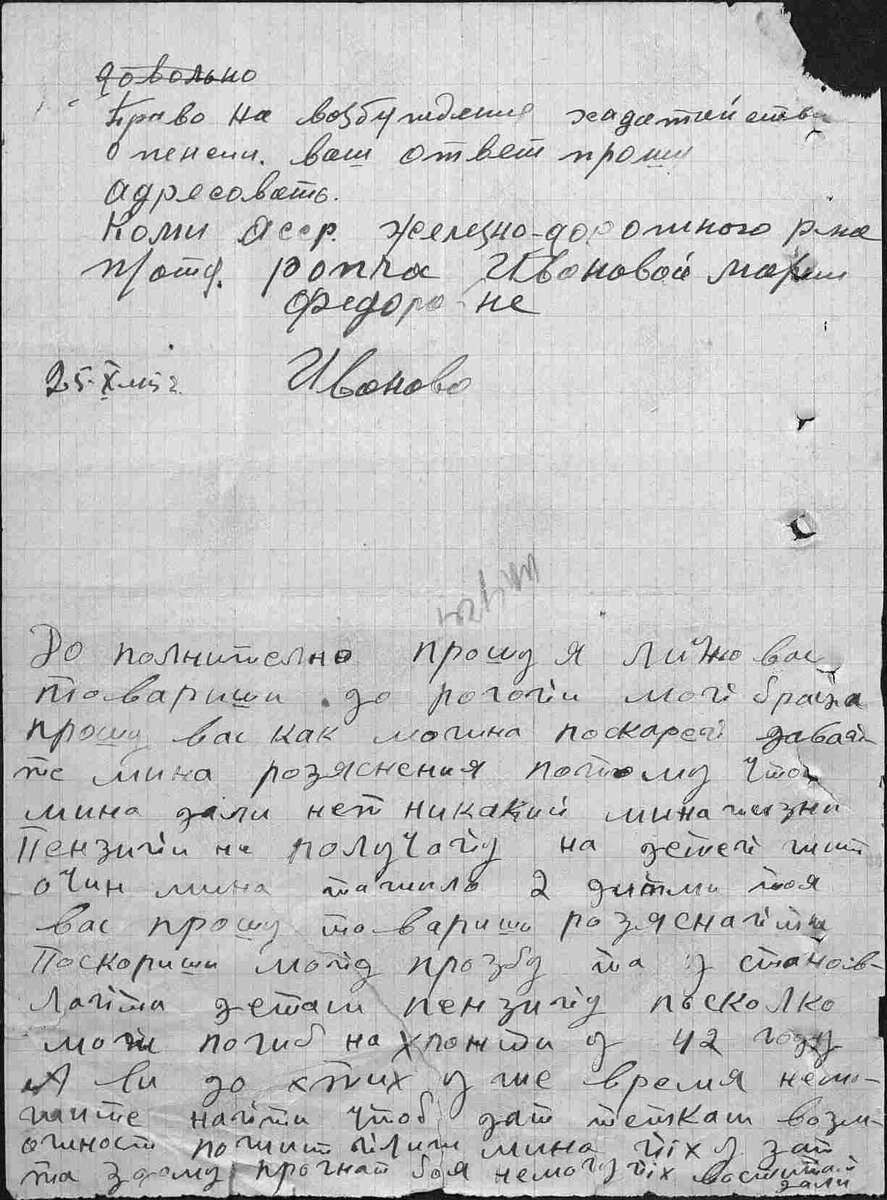 довольно
право на возбуждения хадатайства
о пенсии. ваш ответ прошу
адресовать.
Коми Асср. железно-дорожного р-на
п/отд. ропча Ивоновой марии
Федоровне
25-X Ивоново
До полнително прошу я лично вас
товариши до рогоій моӣ браӣа
прошу вас как можна поскареӣ даваӣ
те мина розяснения потому что
мина дали нет никакӣӣ мина жизни
Пензиӣи не получаӣу на детеӣ жит
очин мина тажило 2 дитми тоя
вас прошу товариши розяснаӣти
Поскориши моӣу прозбу та у станов-
лаӣта детам пензиӣу посколко
мож погиб на хронти у 42 году
А ви до ктих у же время немо-
жите наӣти чтоб дат деткам возмо-
жност пожит мина ӣих у зат
та здому прогнат бо я немогу ӣих воспитат
дали